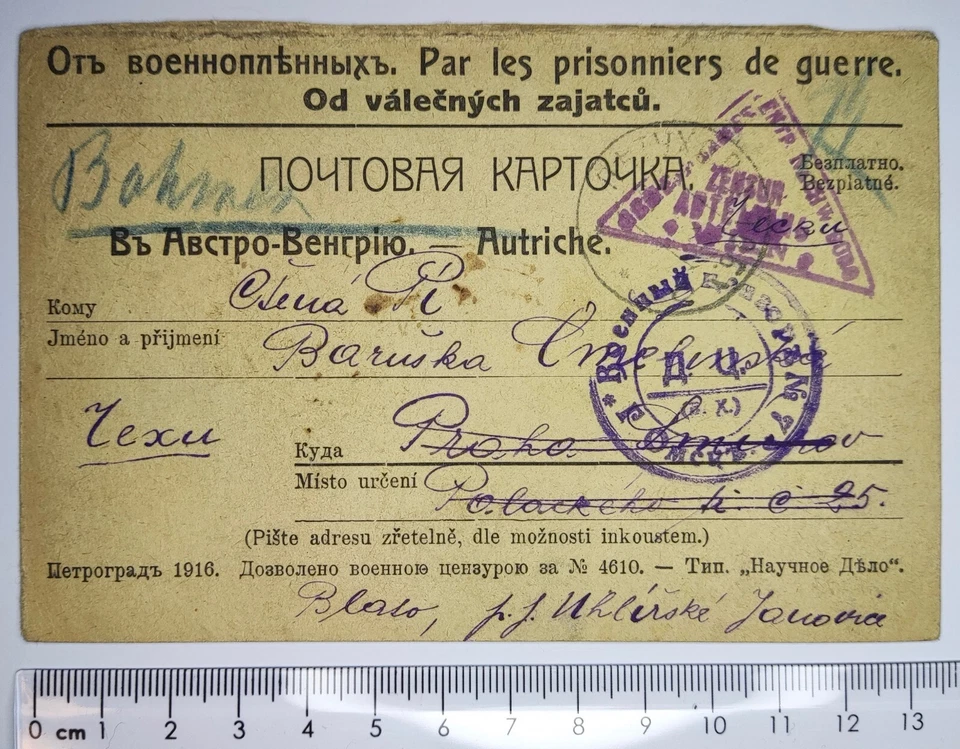 Отъ военноплѣнныхъ. Par les prisonniers de guerre.
Od válečných zajatců.
Bohmen
ПОЧТОВАЯ КАРТОЧКА.
Безплатно.
Bezplatné.
Въ Австро-Венгрію. — Autriche.
Кому
Jméno a přijmení
Baruška
Чехи
Куда
Praha Smichov
Místo určení
Palackého tř. č 25.
(Pište adresu zřetelně, dle možnosti inkoustem.)
Петроградъ 1916. Дозволено военною цензурою за № 4610. — Тип. „Научное Дѣло“.
Blato, p. J. Uhlířské Janovice
Военный Цензоръ №
Д. Ц.
ZENSUR
0 cm 1 2 3 4 5 6 7 8 9 10 11 12 13